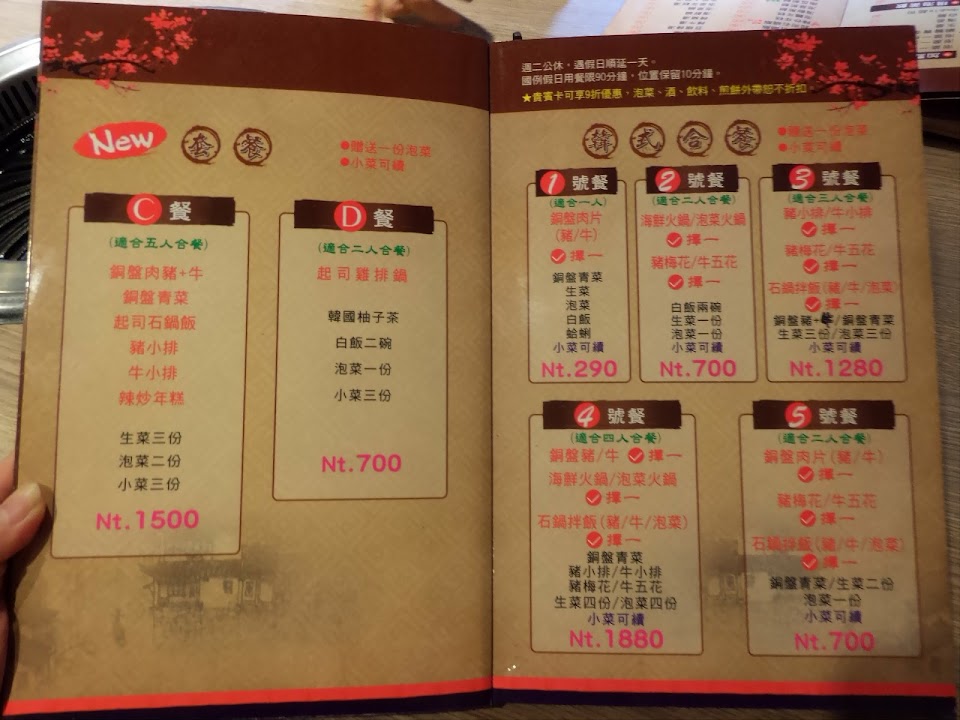 New 套餐
●贈送一份泡菜
●小菜可續
C 餐
(適合五人合餐)
銅盤肉豬+牛
銅盤青菜
起司石鍋飯
豬小排
牛小排
辣炒年糕
生菜三份
泡菜二份
小菜三份
Nt.1500
D 餐
(適合二人合餐)
起司雞排鍋
韓國柚子茶
白飯二碗
泡菜一份
小菜三份
Nt.700
週二公休，遇假日順延一天。
國例假日用餐限90分鐘，位置保留10分鐘。
★貴賓卡可享9折優惠，泡菜、酒、飲料、煎餅外帶恕不折扣
韓式合餐
●贈送一份泡菜
●小菜可續
1 號餐
(適合一人)
銅盤肉片
(豬/牛)
擇一
銅盤青菜
生菜
泡菜
白飯
蛤蜊
小菜可續
Nt.290
2 號餐
(適合二人合餐)
海鮮火鍋/泡菜火鍋
擇一
豬梅花/牛五花
擇一
白飯兩碗
生菜一份
泡菜一份
小菜可續
Nt.700
3 號餐
(適合三人合餐)
豬小排/牛小排
擇一
豬梅花/牛五花
擇一
石鍋拌飯(豬/牛/泡菜)
擇一
銅盤豬+ /銅盤青菜
生菜三份/泡菜三份
小菜可續
Nt.1280
4 號餐
(適合四人合餐)
銅盤豬/牛 擇一
海鮮火鍋/泡菜火鍋
擇一
石鍋拌飯(豬/牛/泡菜)
擇一
銅盤青菜
豬小排/牛小排
豬梅花/牛五花
生菜四份/泡菜四份
小菜可續
Nt.1880
5 號餐
(適合二人合餐)
銅盤肉片(豬/牛)
擇一
豬梅花/牛五花
擇一
石鍋拌飯(豬/牛/泡菜)
擇一
銅盤青菜/生菜二份
泡菜一份
小菜可續
Nt.700